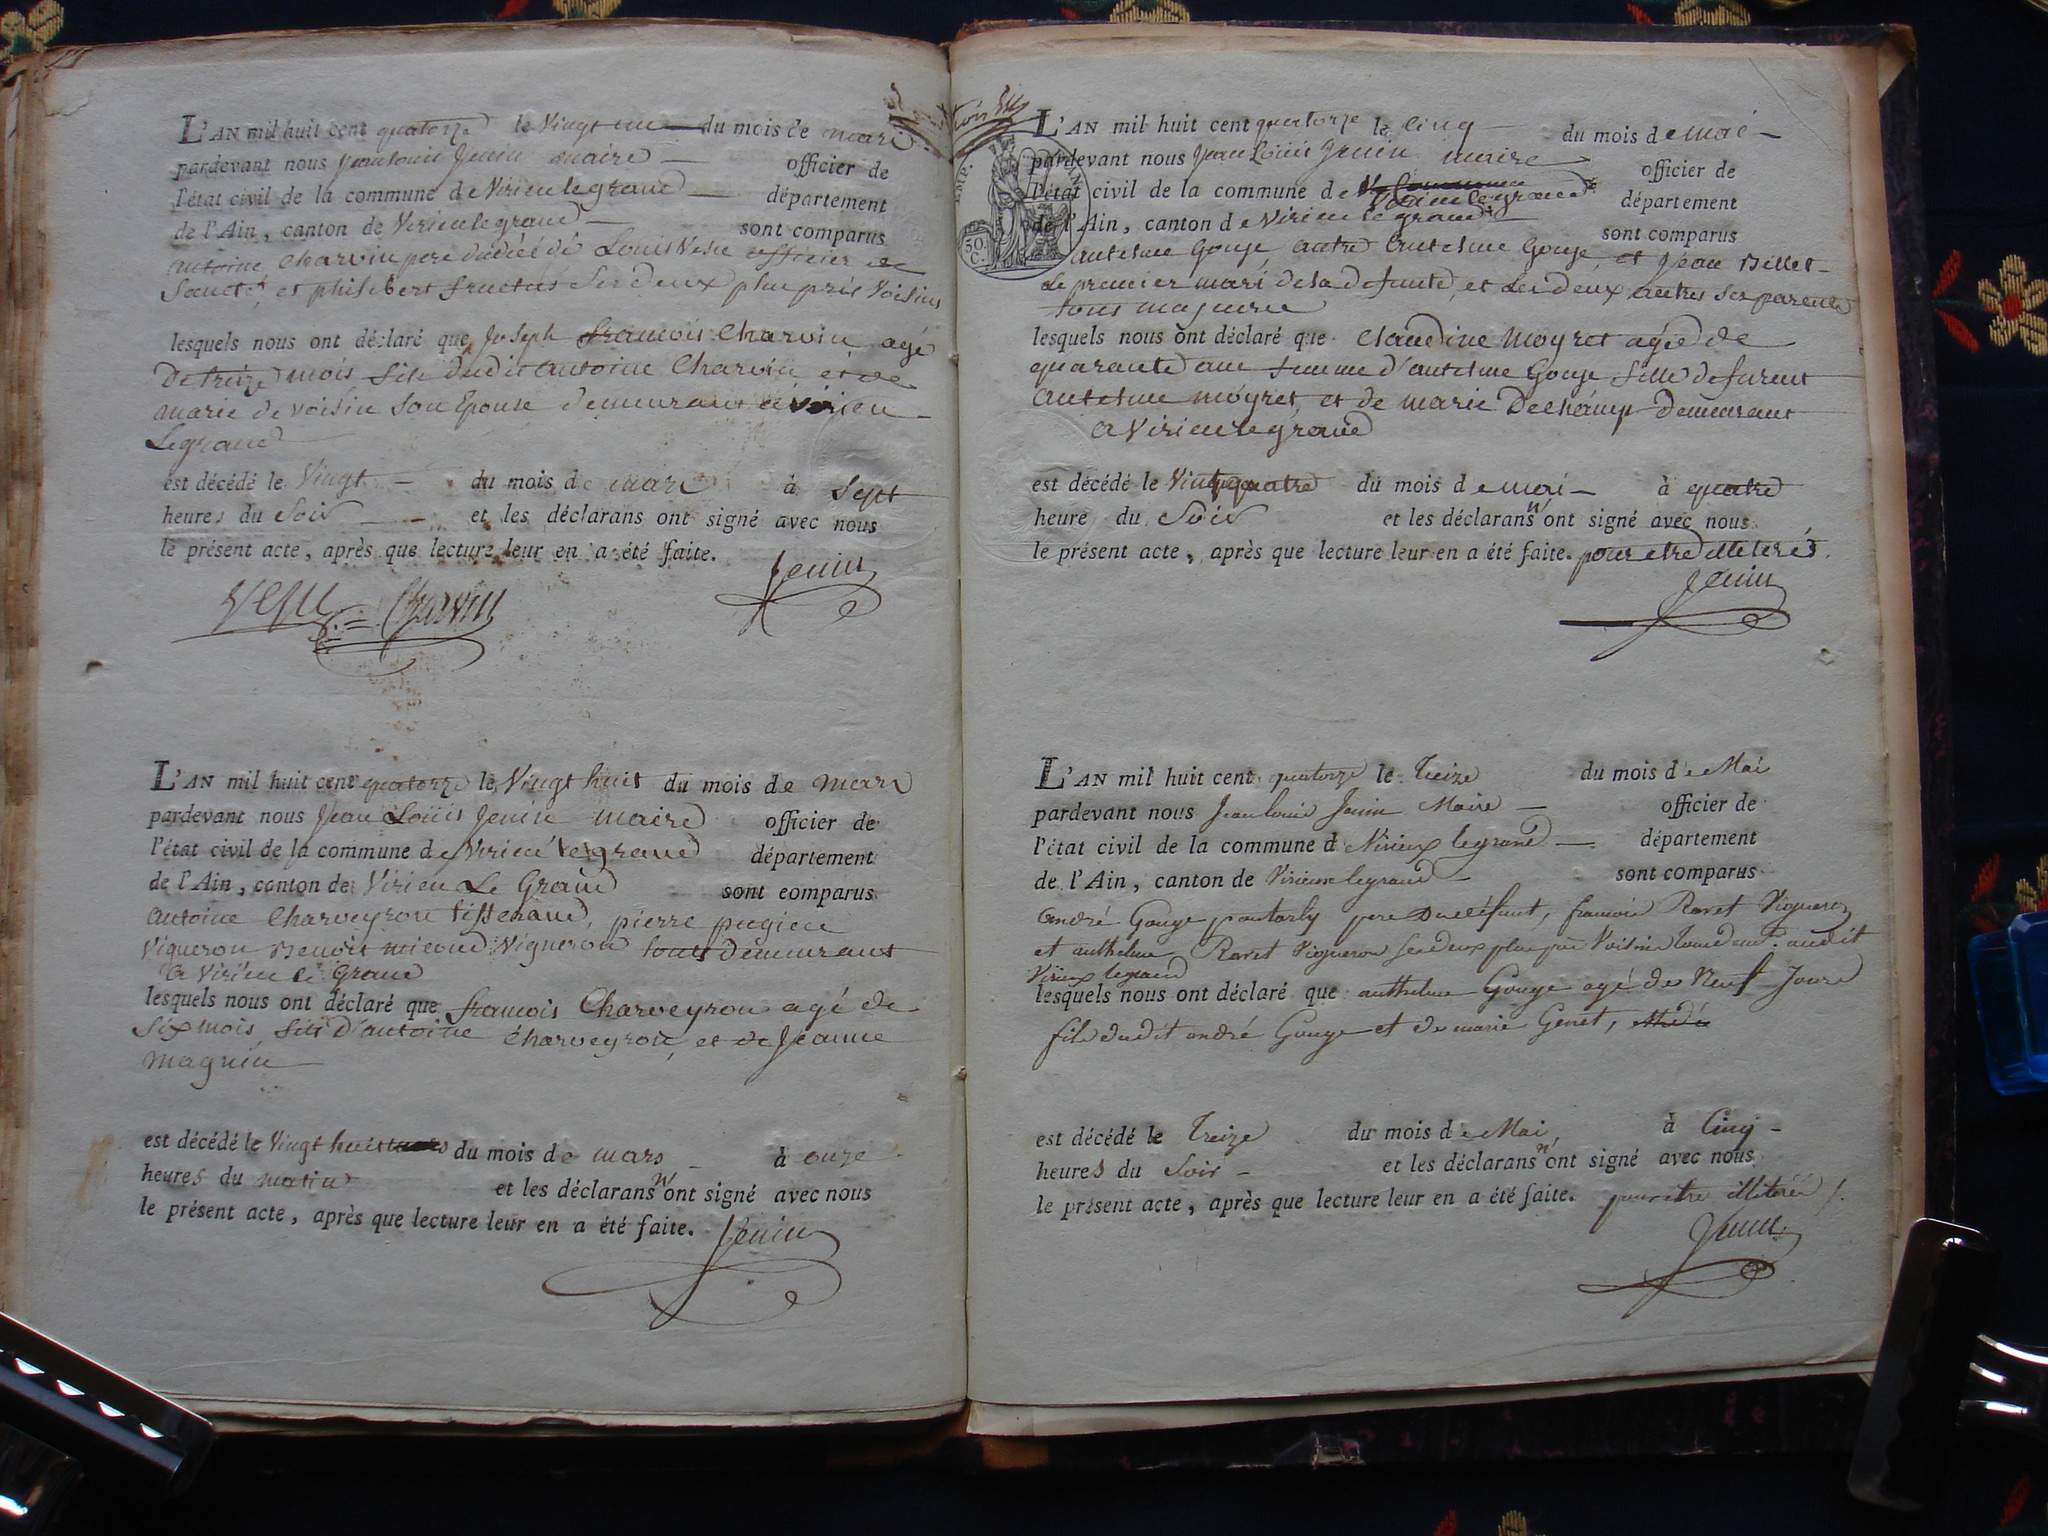 L'AN mil huit cent quatorze le Vingt un du mois de mars
pardevant nous Jean Louis Jenin maire officier de
l'état civil de la commune de Virieulegrand département
de l'Ain, canton de Virieulegrand sont comparus
antoine Charvin pere du Louis Vesu officier de
Santé, et philibert fructus Ses deux plus près Voisins
lesquels nous ont déclaré que Joseph francois Charvin agé
De treize mois fils dudit antoine Charvin et de
marie devoisin Son Epouse demeurant a virieu
Legrand
est décédé le Vingt du mois de mars à Sept
heures du Soir et les déclarans ont signé avec nous
le présent acte, après que lecture leur en a été faite.
Jenin
Vesu Charvin
L'AN mil huit cent quatorze le Vingt huit du mois de Mars
pardevant nous Jean Louis Jenin maire officier de
l'état civil de la commune de Virieu legrand département
de l'Ain, canton de Virieu Le Grand sont comparus
antoine Charveyron tisserand, pierre pugieu
Vigneron Benoit Vigneron tous Demeurant
a Virieu le Grand
lesquels nous ont déclaré que francois Charveyron agé de
Six mois fils D'antoine Charveyron, et de Jeanne
magnin
est décédé le Vingt huit du mois de mars à onze
heures du matin et les déclarans n'ont signé avec nous
le présent acte, après que lecture leur en a été faite. Jenin
L'AN mil huit cent quatorze le cinq du mois de mai
pardevant nous Jean Louis Jenin maire officier de
l'état civil de la commune de Virieulegrand département
de l'Ain, canton de Virieu le grand sont comparus
EMP.
50.
C.
antelme Gouje, autre antelme Gouje, et Jean Billet
Le premier mari de la defunte, et Les deux autres ses parents
tous majeurs
lesquels nous ont déclaré que Claudine Moyret agée de
quarante ans femme d'antelme Gouje fille defurent
antelme moyret, et de marie Dechamp demeurant
a Virieulegrand
est décédé le Vingtquatre du mois de mai à quatre
heure du Soir et les déclarans n'ont signé avec nous
le présent acte, après que lecture leur en a été faite. pour etre illiterés.
Jenin
L'AN mil huit cent quatorze le Treize du mois de Mai
pardevant nous Jean louis Jenin Maire officier de
l'état civil de la commune de Virieux legrand département
de l'Ain, canton de Virieux legrand sont comparus
André Gouge pere Du défunt, francois Ravet Vigneron
et anthelme Ravet Vigneron Ses deux plus près Voisins audit
Virieux legrand
lesquels nous ont déclaré que anthelme Gouge agé de Neuf Jours
fils dudit andré Gouge et de marie Genet,
est décédé le Treize du mois de Mai à Cinq
heures du Soir et les déclarans n'ont signé avec nous
le présent acte, après que lecture leur en a été faite. pour etre illiterés
Jenin